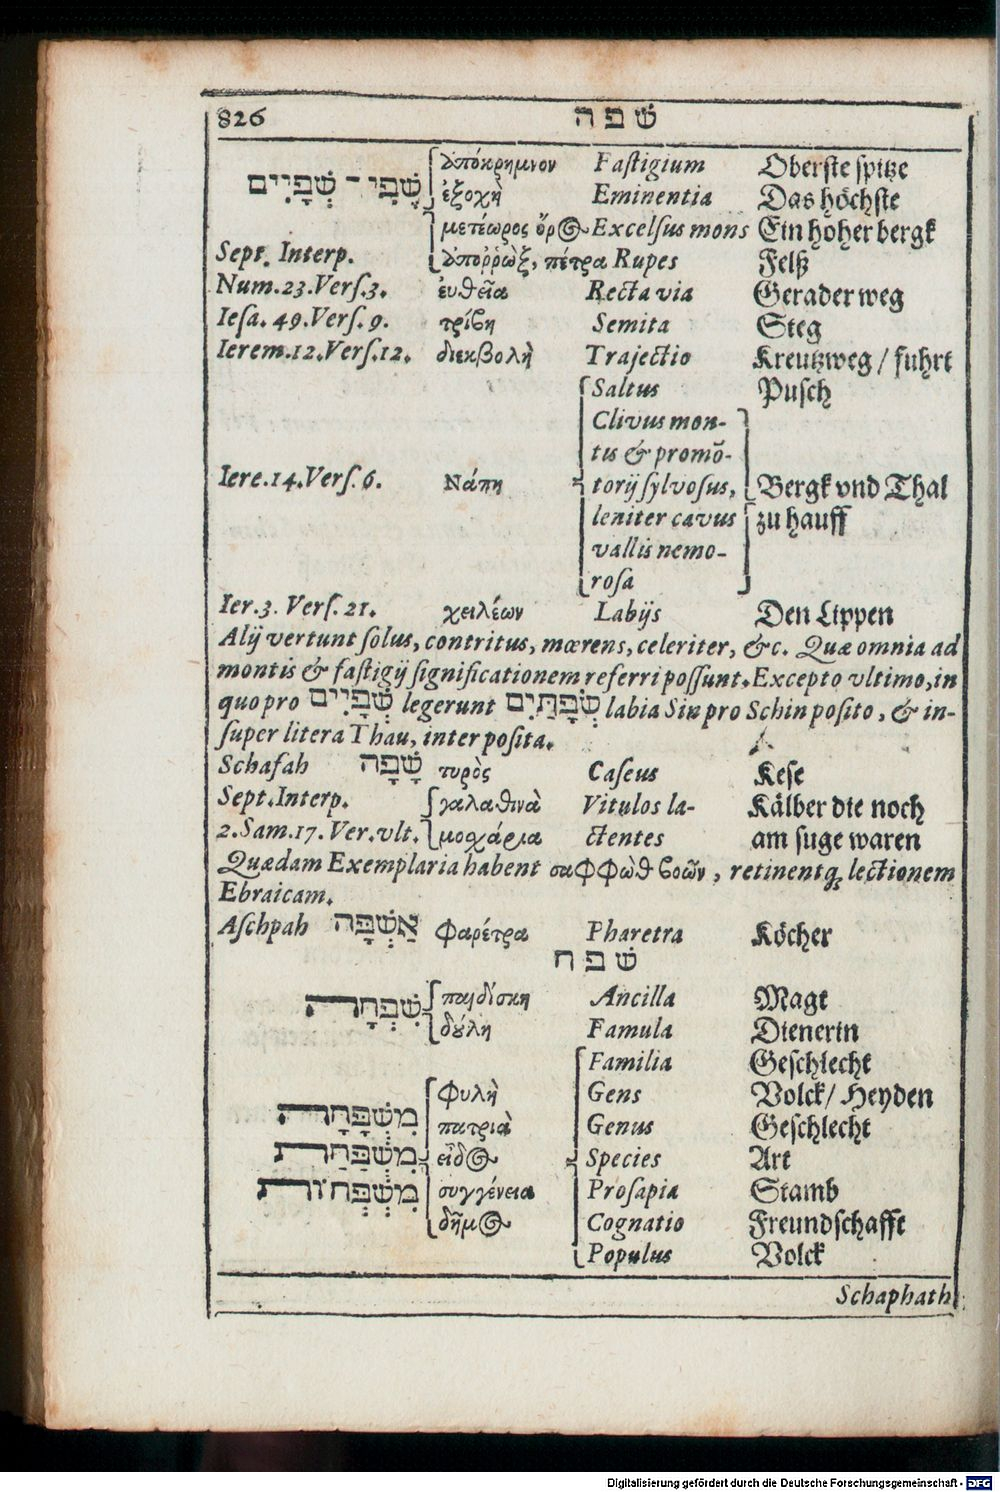 826 שׁפה
שֳׁפִי־ שְׁפָיִים ἀπόκρημνον Faſtigium Oberſte ſpitze
ἐξοχὴ Eminentia Das höchſte
μετέωρος ὄρος Excelſus mons Ein hoher bergk
Sept. Interp. ἀποῤῥὼξ, πέτρα Rupes Felß
Num.23.Verſ.3. ἐυθεῖα Recta via Gerader weg
Ieſa. 49.Verſ. 9. τρίβη Semita Steg
Ierem.12.Verſ.12. διεκβολὴ Trajectio Kreutzweg / fuhrt
Saltus Puſch
Clivus mon-
tis & promõ-
Iere.14.Verſ. 6. Νάπη torij ſylvoſus, Bergk vnd Thal
leniter cavus zu hauff
vallis nemo-
roſa
Ier.3. Verſ. 21. χειλέων Labijs Den Lippen
Alij vertunt ſolus, contritus, mœrens, celeriter, &c. Quæ omnia ad
montis & faſtigij ſignificationem referri poſſunt. Excepto vltimo, in
quo pro שְׁפָיִים legerunt שְׂפָתַיִם labia Sin pro Schin poſito, & in-
ſuper litera Thau, inter poſita.
Schafah שָׁפָה τυρὸς Caſeus Keſe
Sept. Interp. γαλαθινὰ Vitulos la- Kälber die noch
2.Sam.17. Ver.vlt. μοσχάρια ctentes am ſuge waren
Quædam Exemplaria habent σαφφὼθ βοῶν, retinentq́; lectionem
Ebraicam.
Aſchpah אַשְׁפָּה φαρέτρα Pharetra Köcher
שׁפח
שִׁפְחָה παιδίσκη Ancilla Magt
δούλη Famula Dienerin
Familia Geſchlecht
φυλὴ Gens Volck/ Heyden
מִשְׁפָּחָה πατριὰ Genus Geſchlecht
מִשְׁפַּחַת εἶδος Species Art
מִשְׁפְּחוֹת συγγένεια Proſapia Stamb
δῆμος Cognatio Freundſchafft
Populus Volck
Schaphath
Digitalisierung gefördert durch die Deutsche Forschungsgemeinschaft - DFG